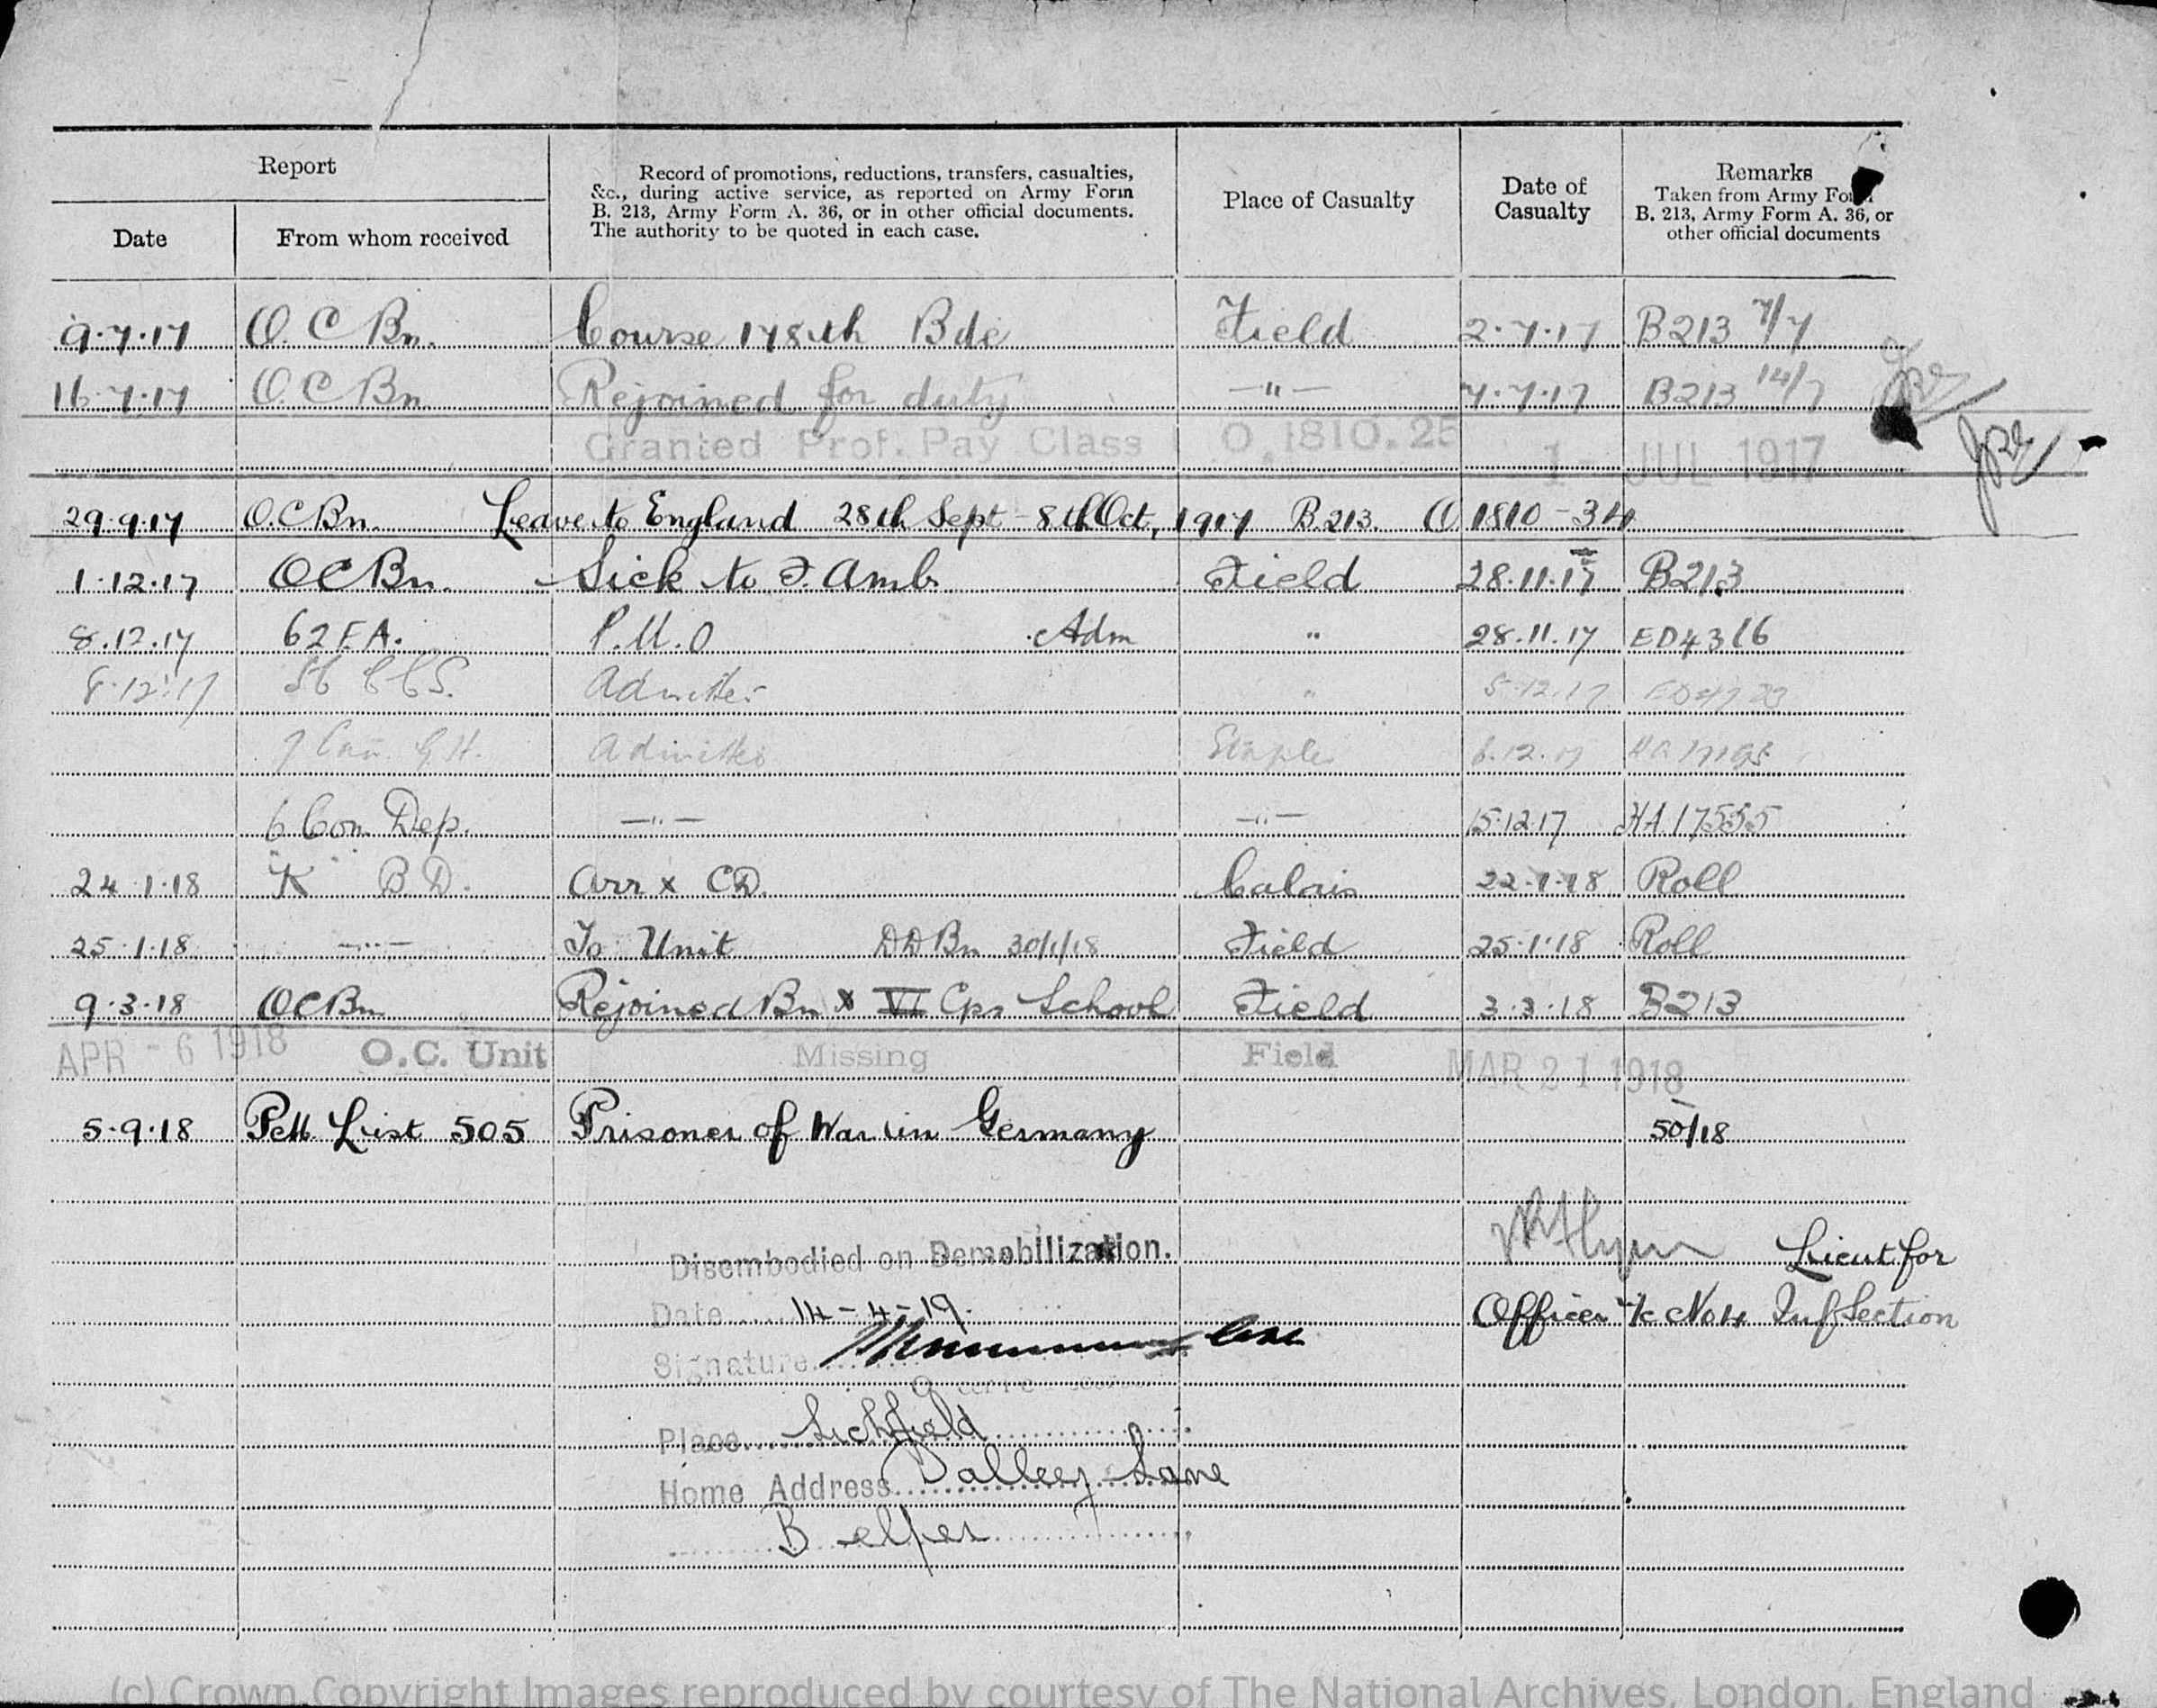 Report
Record of promotions, reductions, transfers, casualties,
&c., during active service, as reported on Army Form
B. 213, Army Form A. 36, or in other official documents.
The authority to be quoted in each case.
Place of Casualty
Date of
Casualty
Remarks
Taken from Army Form
B. 213, Army Form A. 36, or
other official documents
Date From whom received
9.7.17 O.C Bn. Course 178th Bde Field 2.7.17 B213 7/7
16.7.17 O.C Bn Rejoined for duty —"— 7.7.17 B213 14/7
Granted Prof. Pay Class O. 1810.25 1 - JUL 1917
29.9.17 O.C Bn. Leave to England 28th Sept - 8th Oct, 1917 B.213. O 1810-34
1.12.17 OC Bn. Sick to F. Amb. Field 28.11.17 B213
8.12.17 62 F.A. P.U.O Adm " 28.11.17 ED4316
8.12.17 CCS. Admitted " 5.12.17
7 Can. G.H. Admitted Etaples 6.12.17
6 Con Dep. —"— —"— 15.12.17 HA.17555
24.1.18 "K" B.D. Arr x CD. Calais 22.1.18 Roll
25.1.18 —"— To Unit DD Bn 30/1/18 Field 25.1.18 Roll
9.3.18 OC Bn Rejoined Bn x VI Cps School Field 3.3.18 B213
APR - 6 1918 O.C. Unit Missing Field MAR 21 1918
5.9.18 List 505 Prisoner of War in Germany 50/18
Disembodied on Demobilization.
Lieut for
Date 14-4-19.
Officer i/c No 4 Inf Section
Signature
Place Lichfield
Home Address Lane
Belper
(c) Crown Copyright Images reproduced by courtesy of The National Archives, London, England